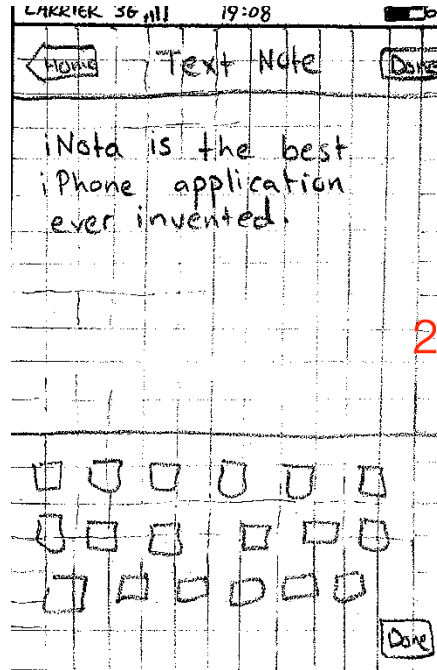 CARRIER 3G 19:08
Home Text Note Done
iNota is the best
iPhone application
ever invented.
2
Done